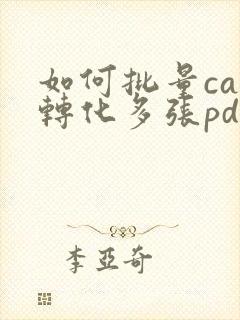 如何批量ca
轉化多張pd
李亞奇